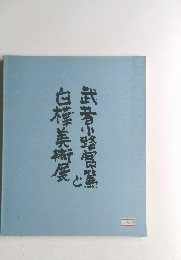 武者小路實篤と
白樺美術展